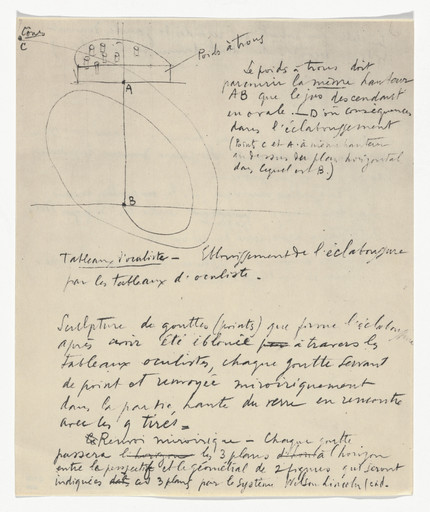 Cours
C
Poids à trous
A
B
Le poids à trous doit
parcourir la même hauteur
AB que le jus descendant
en ovale. — D'où conséquences
dans l'éclaboussement
(Points C et A à même hauteur
au dessus du plan horizontal
dans lequel est B.)
Tableaux d'oculistes — Eblouissement de l'éclaboussure
par les tableaux d'oculiste.
Sculpture de gouttes (points) que forme l'éclabou
après avoir été éblouie à travers les
tableaux oculistes, chaque goutte servant
de point et renvoyée miroiriquement
dans la partie haute du verre en rencontre
avec les 9 tirés =
Renvoi miroirique — Chaque goutte
passera les 3 plans à l'horizon
entre la perspectif et le géométral de 2 figures qui seront
indiquées ces 3 plans par le système Wilson-Lincoln (cad.